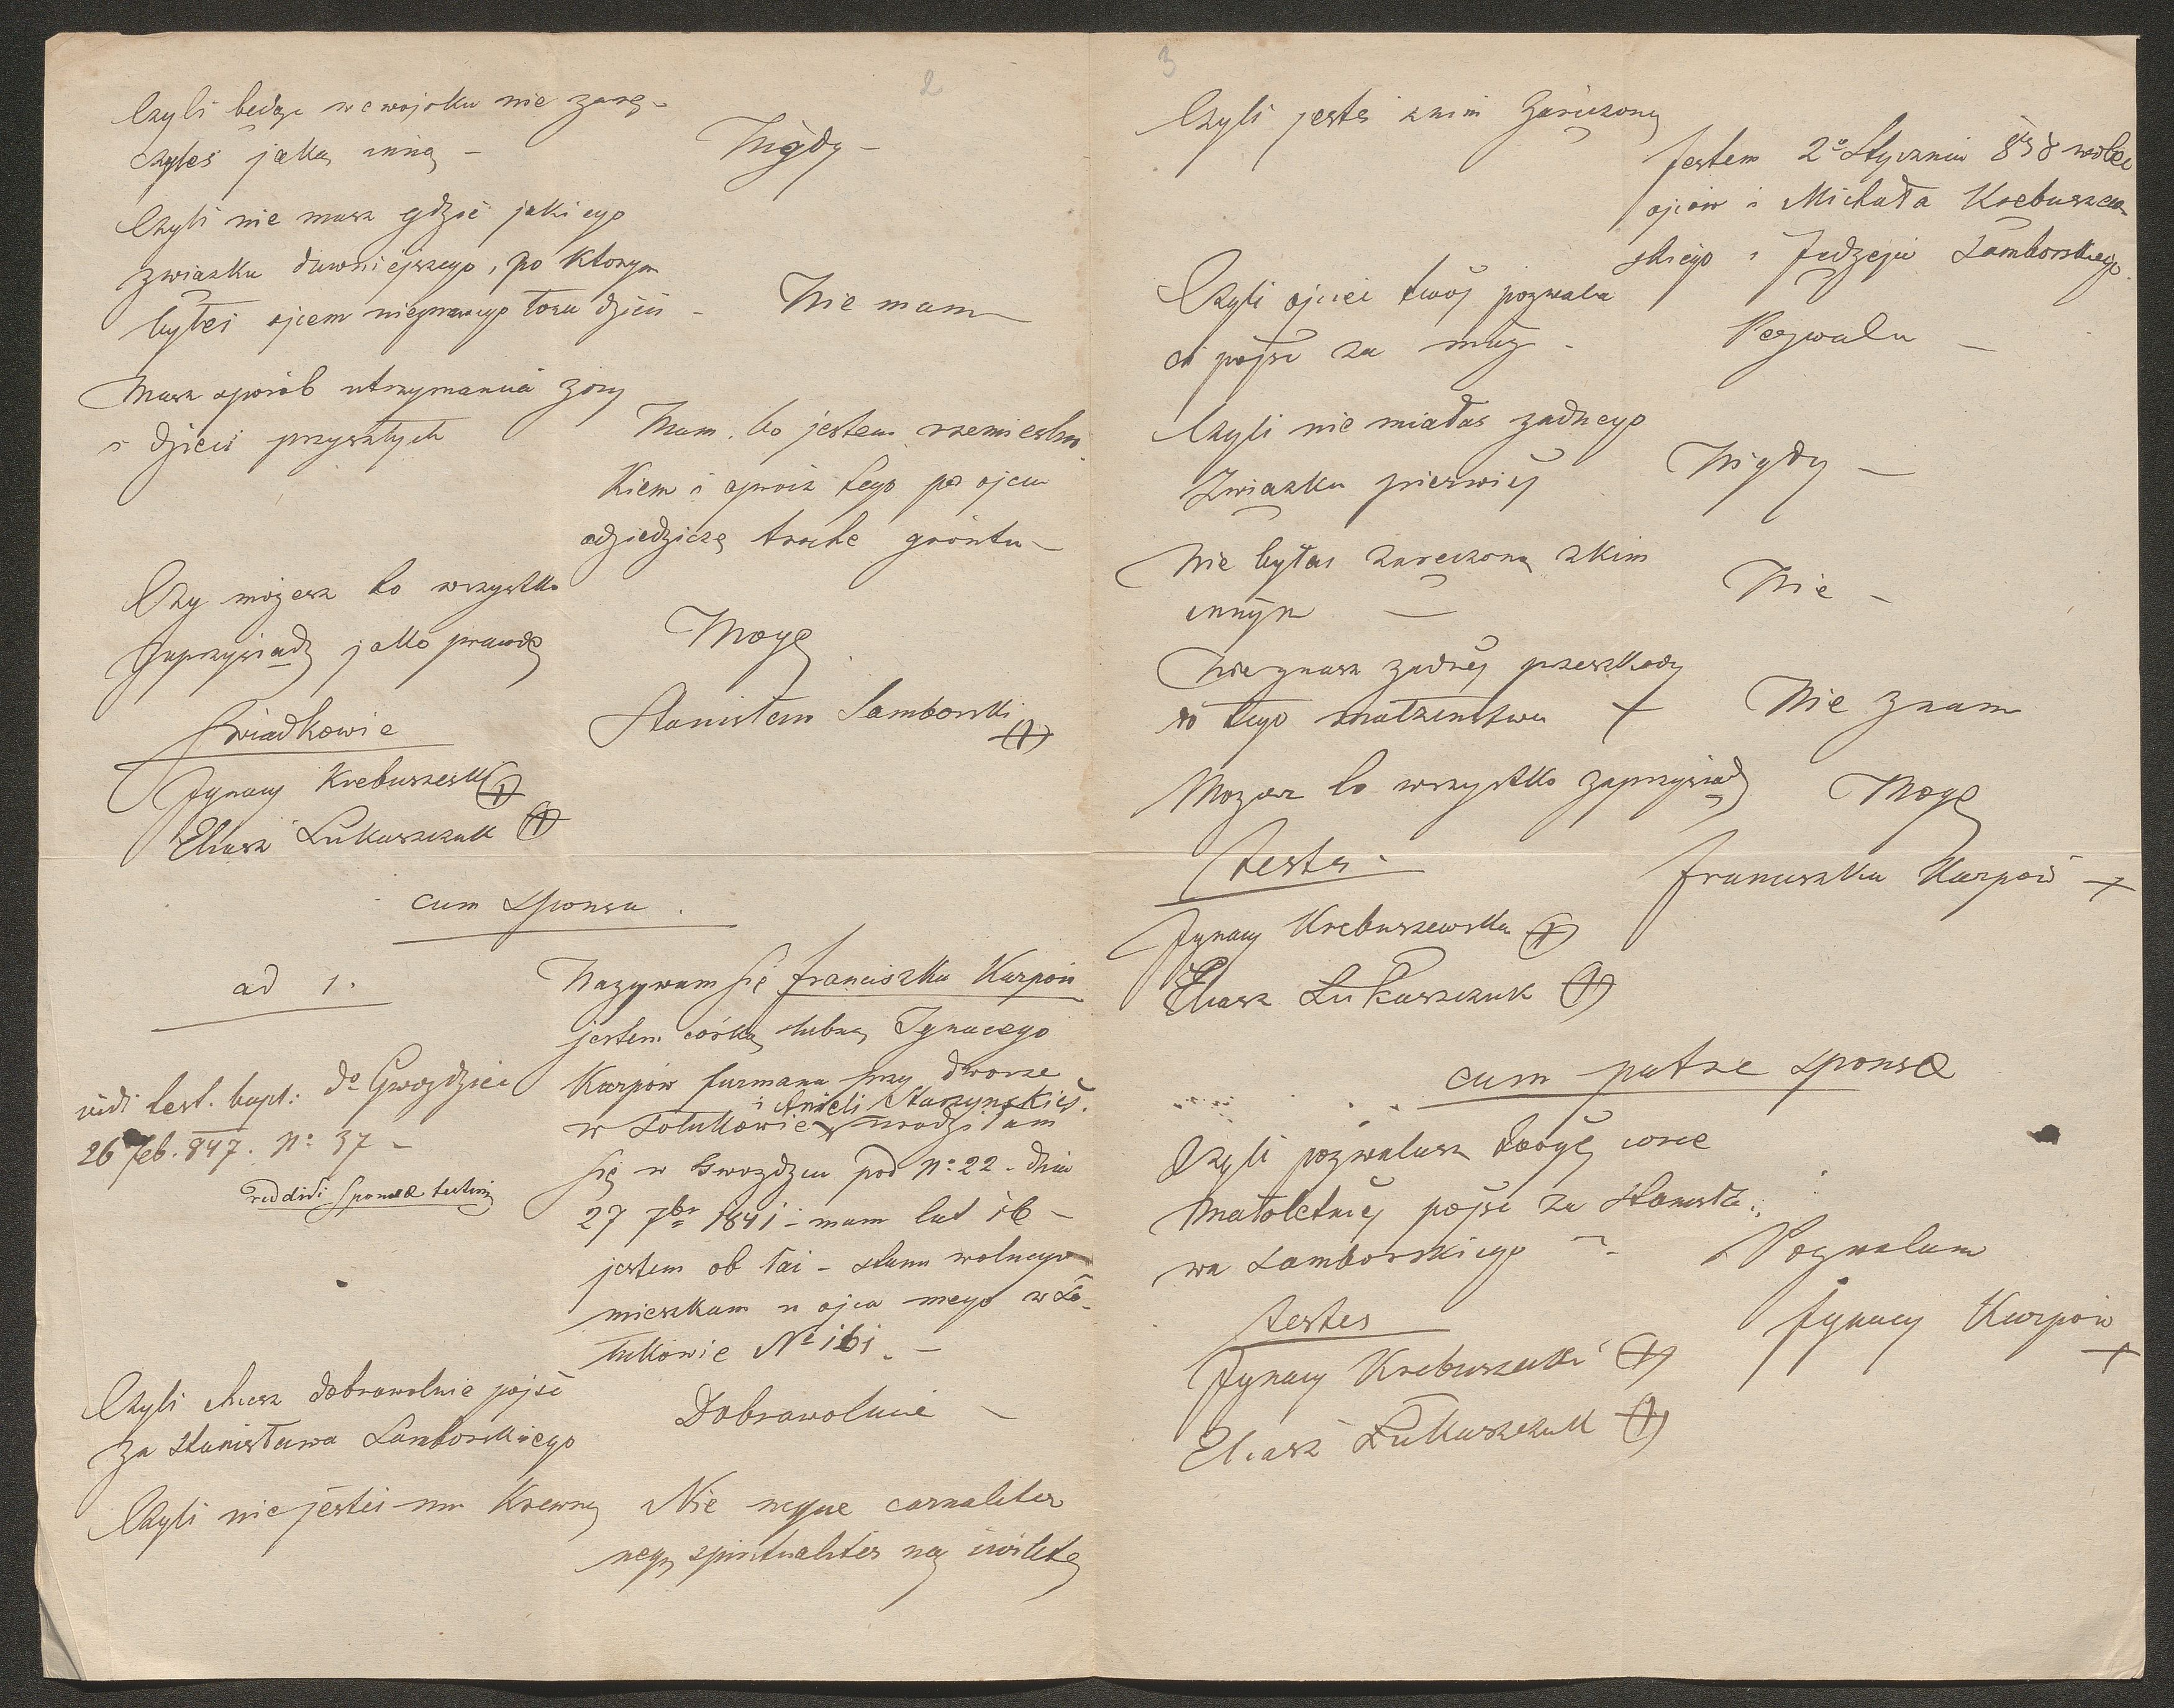 2
Czyli będąc we wojsku nie zarę-
czyłeś jaką inną -
Nigdy -
Czyli nie masz gdzie jakiego
związku dawniejszego, po którym
byłeś ojcem nieprawego łoża dzieci -
Nie mam
Masz sposób utrzymania żony
i dzieci przyszłych
Mam, bo jestem rzemieślni-
kiem i oprócz tego po ojcu
odziedziczę trochę gróntu -
Czy możesz to wszystko
zaprzysiądz jako prawdę
Mogę
Świadkowie
Stanisław Samborski
Ignacy Krebuszeski
Eliasz Łukaszczuk
cum sponsa.
ad 1.
Nazywam się Franciszka Karpów
jestem córką ślubną Ignacego
Karpów furmana przy dworze
i Anieli Starzyńskiéj.
w Sołukowie urodziłam
się w Gwozdzcu pod No: 22 - dnia
27 7br 1841 - mam lat 16 -
jestem ob. łać - stanu wolnego
mieszkam u ojca mego w So-
łukowie No 161. -
vidi test. bapt: do Gwozdziec
26 feb. 847. No: 37 -
reddidi sponsae
Czyli chcesz dobrowolnie pojść
za Stanisława Samborskiego
Dobrowolnie -
Czyli nie jesteś mu krewną
Nie neque carnaliter
neq spiritualiter neq
3
Czyli jesteś z nim zaręczoną
Jestem 2o Stycznia 858 wobec
ojców i Michała Krebuszew-
skiego i Jędzeja Samborskiego.
Czyli ojciec twój pozwala
ci pójść za mąż -
Pozwala -
Czyli nie miałaś żadnego
Związku pierwiéj
Nigdy -
Nie byłaś zaręczoną z kim
innym -
Nie -
Nie znasz żadnéj przeszkody
do tego małżeństwa
Nie znam
Możesz to wszystko zaprzysiądz
Mogę
Testes.
Franciszka Karpów +
Ignacy Krebuszewski
Eliasz Łukaszczuk
cum patre sponsae
Czyli pozwalasz swojéj córce
małoletniéj pójść za Stanisła-
wa Samborskiego -
Pozwalam
Testes
Ignacy Karpów
+
Ignacy Krebuszeski
Eliasz Łukaszczuk